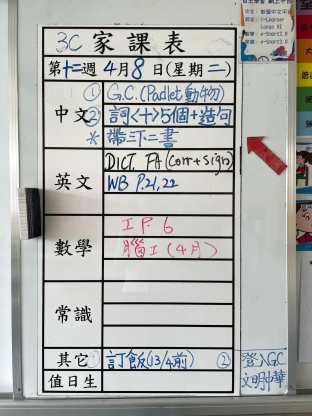 3C 家課表
第十二週 4月8日(星期二)
中文 ① G.C.(Padlet動物)
② 詞<十>5個+造句
* 帶三下二書
英文 DICT. PA (corr + sign)
WB P.21,22
數學 I P. 6
腦I (4月)
常識
其它 ① 訂飯(13/4前) ② 登入GC
值日生 文明中華